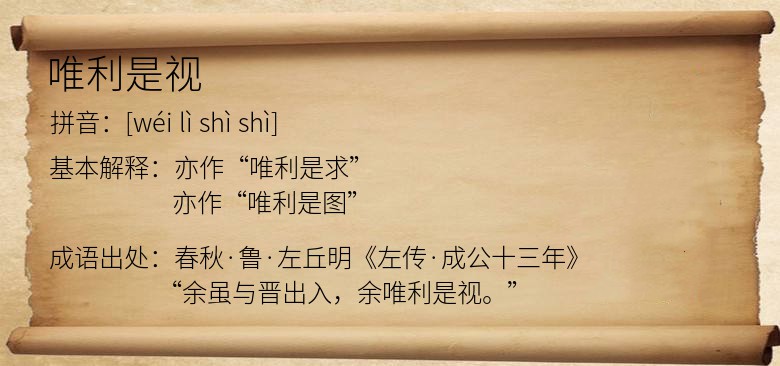 唯利是视
拼音：[wéi lì shì shì]
基本解释：亦作“唯利是求”
亦作“唯利是图”
成语出处：春秋·鲁·左丘明《左传·成公十三年》
“余虽与晋出入，余唯利是视。”